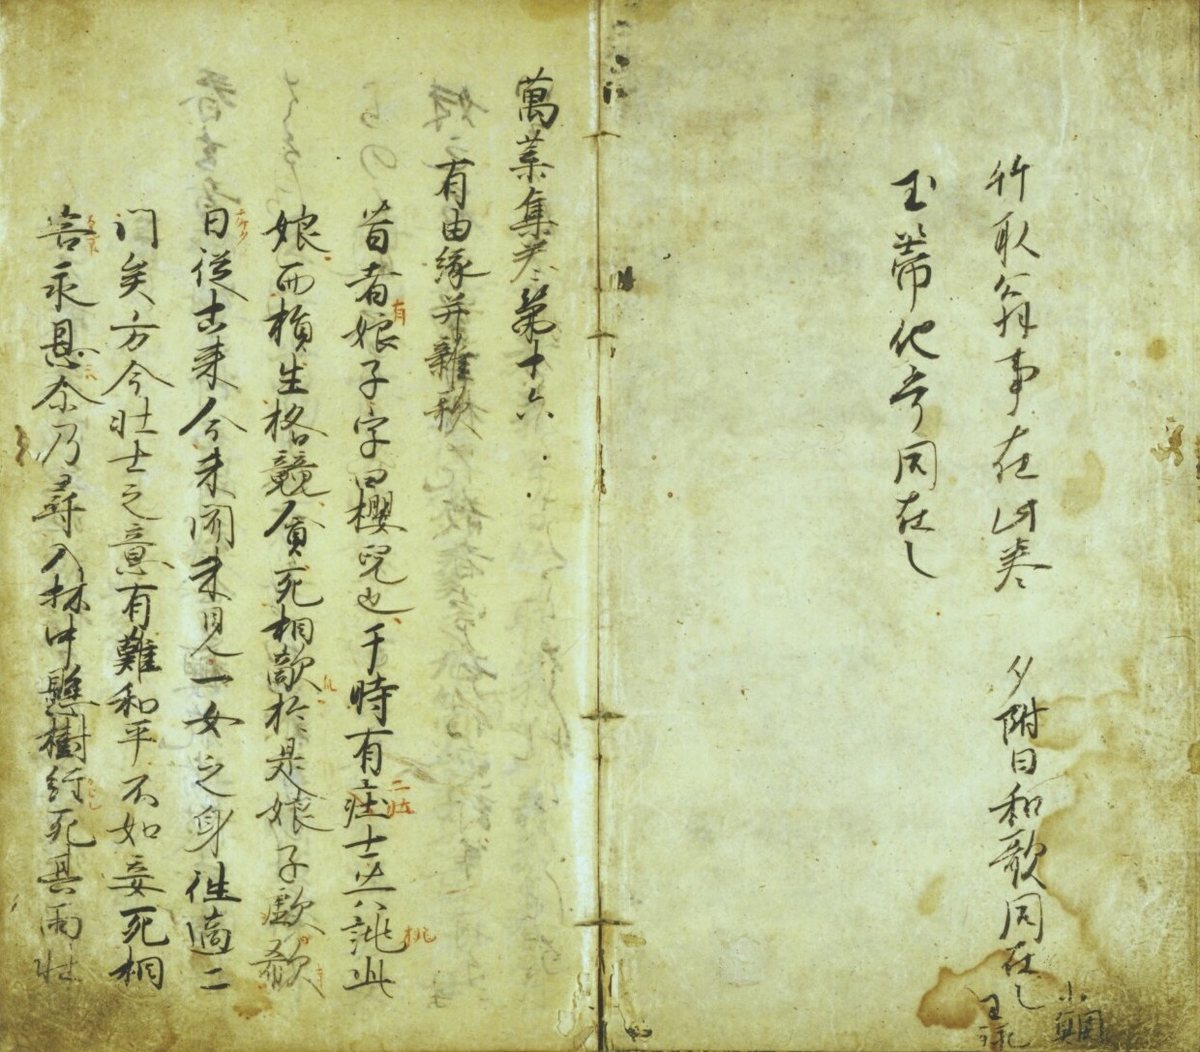 竹取翁事在此巻 夕附日和歌同在之
玉箒 同在之
萬葉集巻第十六
有由縁并雜歌
昔者娘子字曰櫻兒也于時有壮士共誂此
有
二壮
桃
娘而損生格競貪死相敵於是娘子歔欷
曰從古来今未聞未見一女之身徃適二
门矣方今壮士之意有難和平不如妾死相
害永息尒乃尋入林中懸樹經死其兩壮